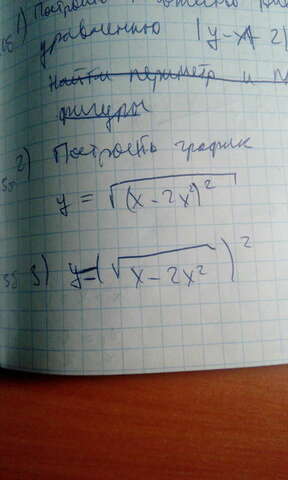 1) Построить
уравнению |y-x-2|
Найти периметр и
фигуры
2) Построить график
y = √(x - 2x²)²
3) y=(√x - 2x²)²